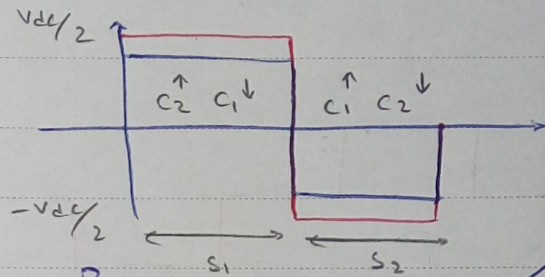 Vdc/2
C2↑ C1↓ C1↑ C2↓
-Vdc/2
S1 S2